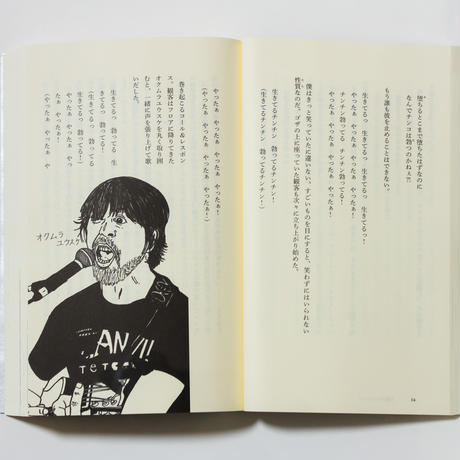 堕ちるとこまで堕ちたはずなのに
なんでチンコは勃つのかねぇ!!
もう誰も彼を止めることはできない。
生きてるっ 勃ってるっ 生きてるっ!
チンチン 勃ってる!
チンチン 勃ってる!
やったぁ やったぁ やったぁ!
(生きてるチンチン 勃ってるチンチン!)
僕はきっと笑っていたに違いない。すごいものを目にすると、笑わずにはいられない
性質なのだ。ゴザの上に座っていた観客も次々に立ち上がり始めた。
(生きてるチンチン 勃ってるチンチン!)
14
やったぁ やったぁ やったぁ!
(やったぁ やったぁ やったぁ!)
巻き起こるコール&レスポン
ス。観客はフロアに降りてきた
オクムラユウスケを丸く取り囲
むと、一緒に声を張り上げて歌
いだした。
生きてるっ 勃ってる 生
きてるっ 勃ってる!
(生きてるっ 勃ってる
生きてるっ 勃ってる!)
やったぁ やったぁ やっ
たぁ やったぁ!
(やったぁ やったぁ や
オクムラ
ユウスケ